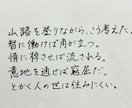 山路を登りながら、こう考えた。
智に働けば角が立つ。
情に棹させば流される。
意地を通せば窮屈だ。
とかく人の世は住みにくい。